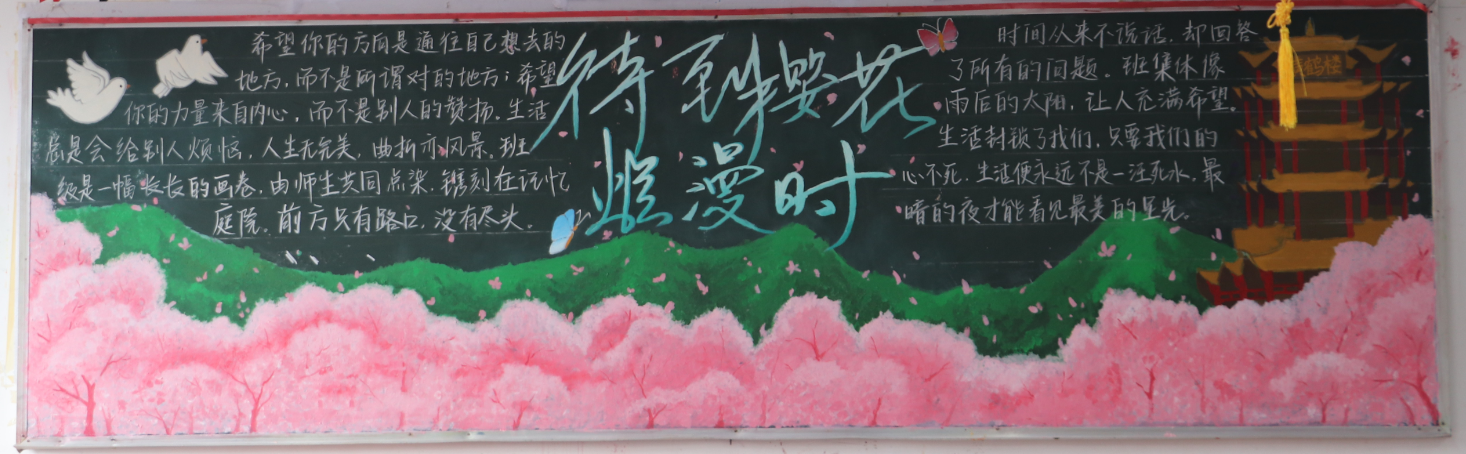 希望你的方向是通往自己想去的
地方,而不是所谓对的地方;希望
你的力量来自内心,而不是别人的赞扬。生活
总是会给别人烦恼,人生无完美,曲折亦风景。班
级是一幅长长的画卷,由师生共同点染,镌刻在记忆
庭院。前方只有路口,没有尽头。
待到樱花
烂漫时
时间从来不说话,却回答
了所有的问题。班集体像
雨后的太阳,让人充满希望。
生活封锁了我们,只要我们的
心不死,生活便永远不是一汪死水,最
暗的夜才能看见最美的星光。
鹤楼